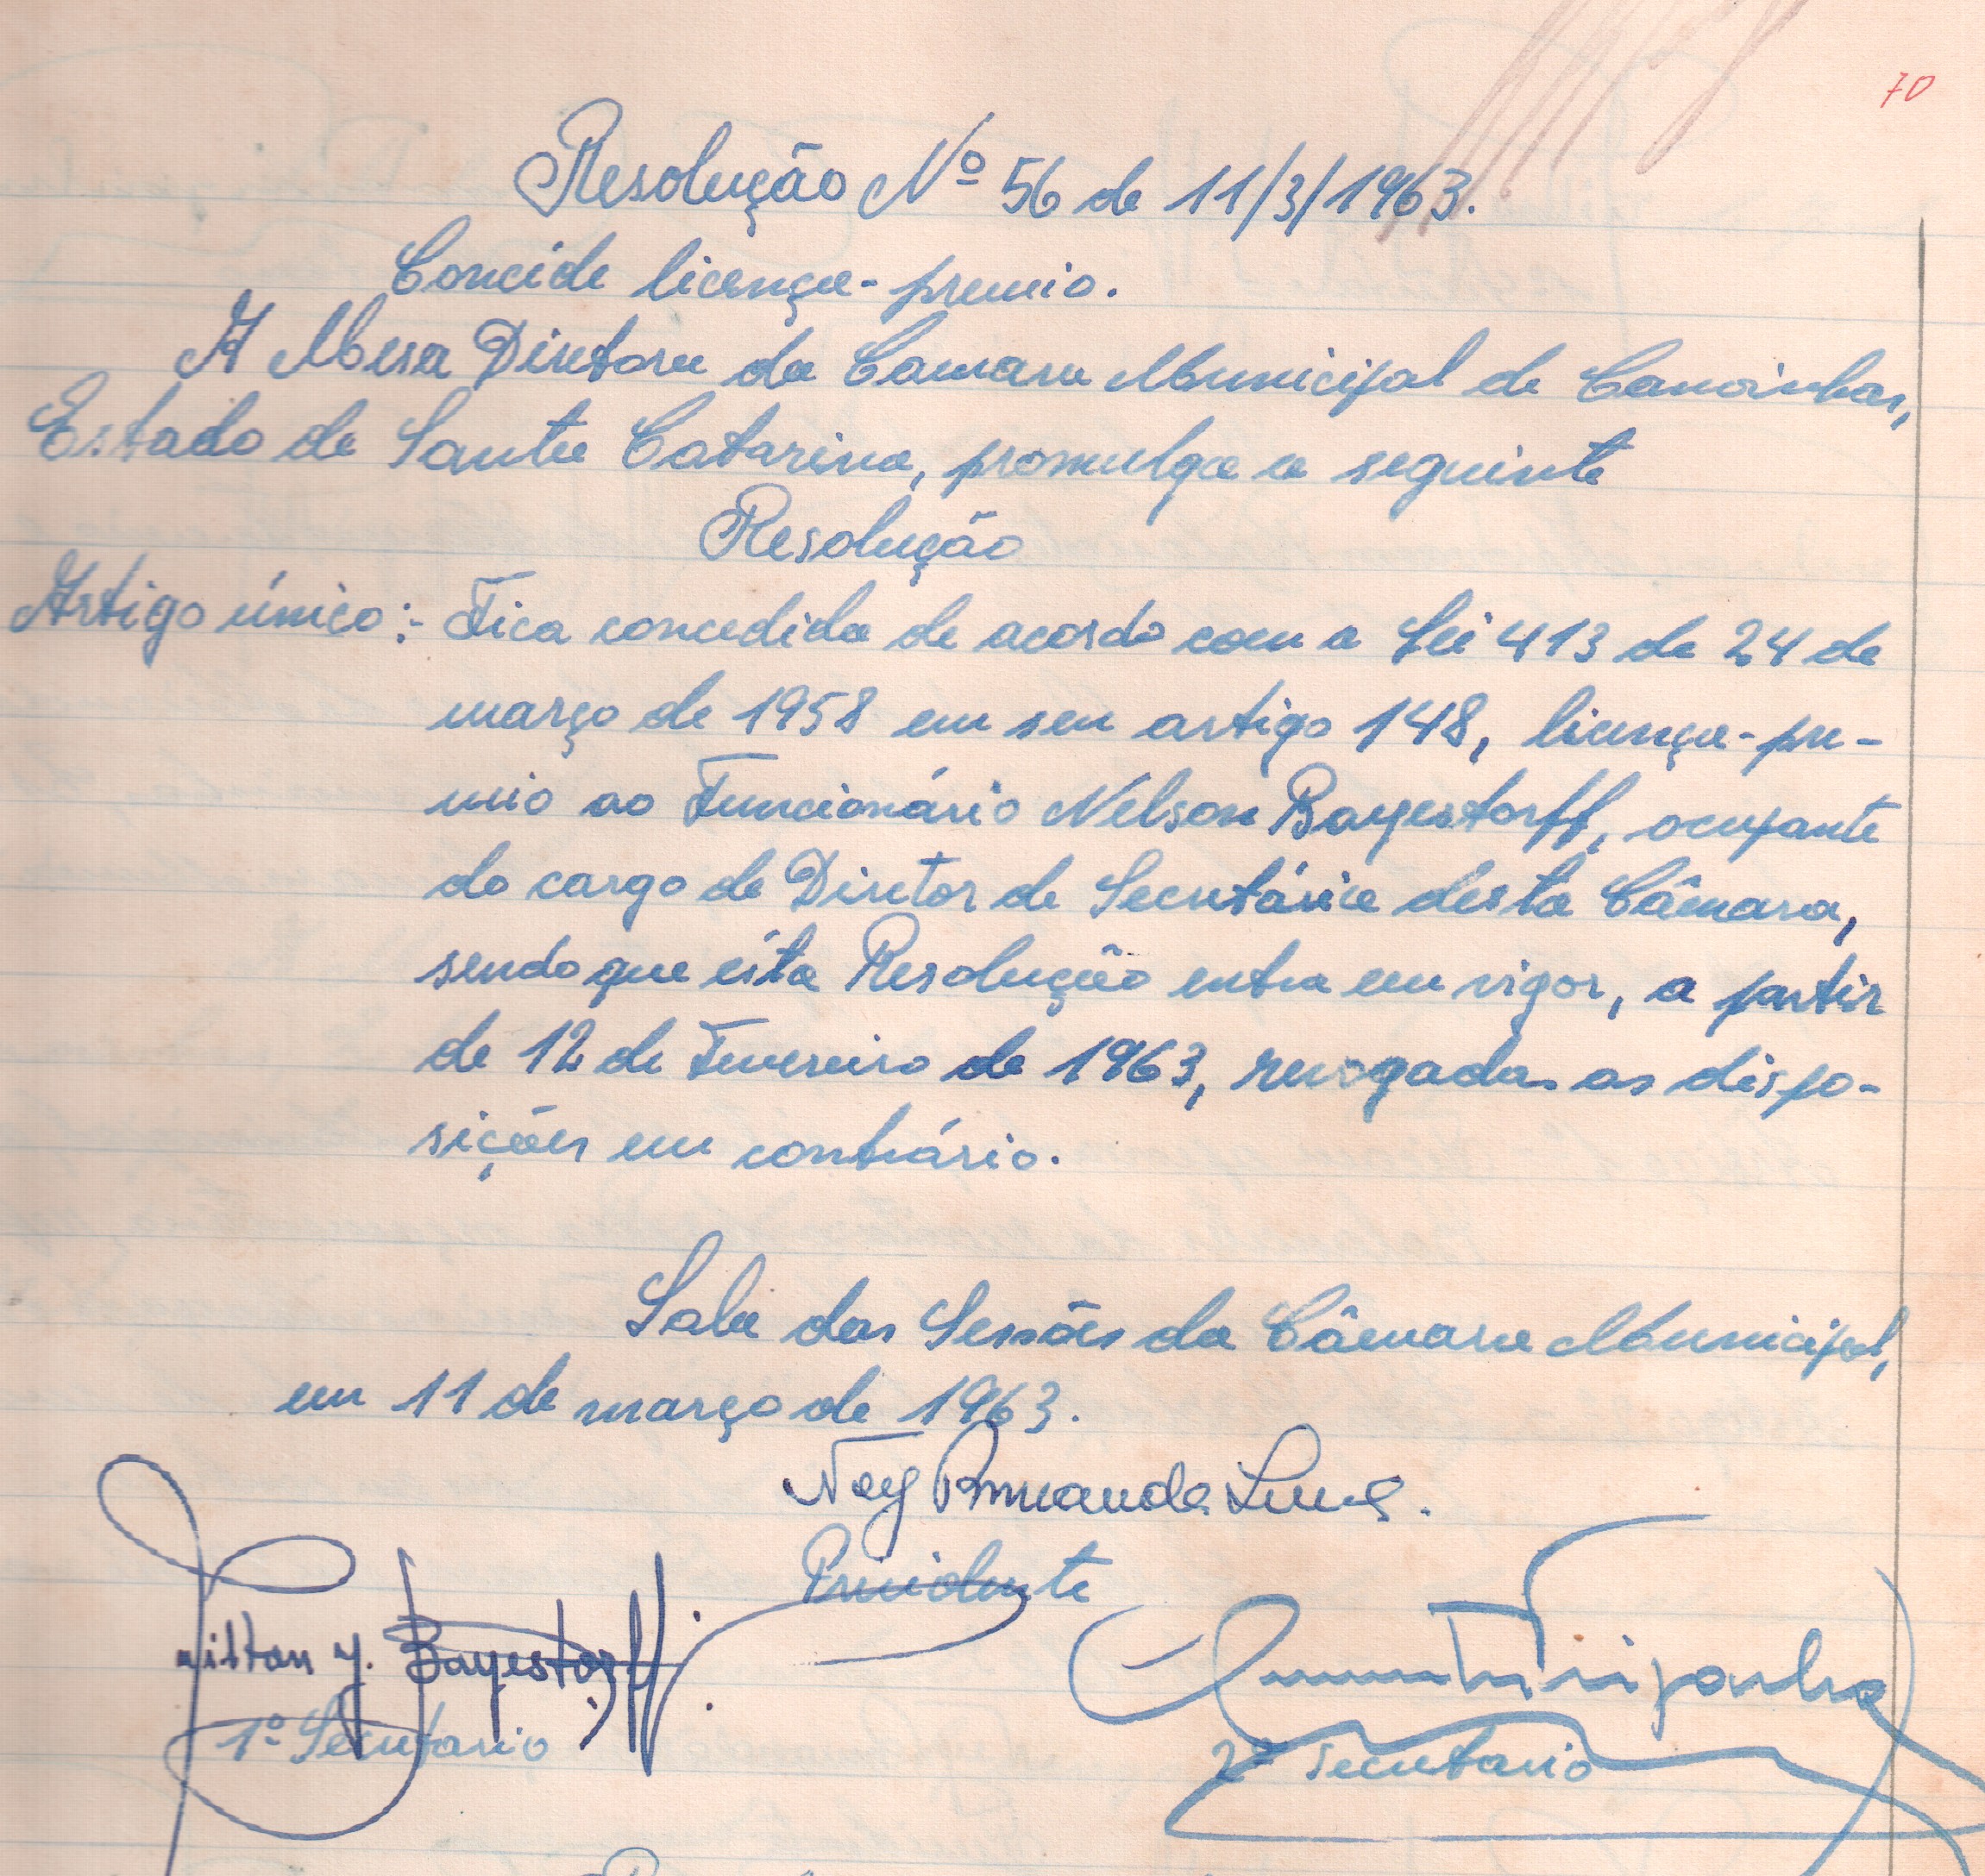 70
Resolução Nº 56 de 11/3/1963.
Concide licença-premio.
A Mesa Diretora da Camara Municipal de Canoinhas,
Estado de Santa Catarina, promulga a seguinte
Resolução
Artigo único:- Fica concedida de acordo com a Lei 413 de 24 de
março de 1958 em seu artigo 148, licença-pre-
mio ao Funcionário Nelson Bayestorff, ocupante
do cargo de Diretor de Secretária desta Câmara,
sendo que ésta Resolução entra em vigor, a partir
de 12 de Fevereiro de 1963, revogadas as dispo-
sições em contrário.
Sala das Sessões da Câmara Municipal,
em 11 de março de 1963.
Ney
Presidente
Bayestorff
1º Secretario
2º Secretario